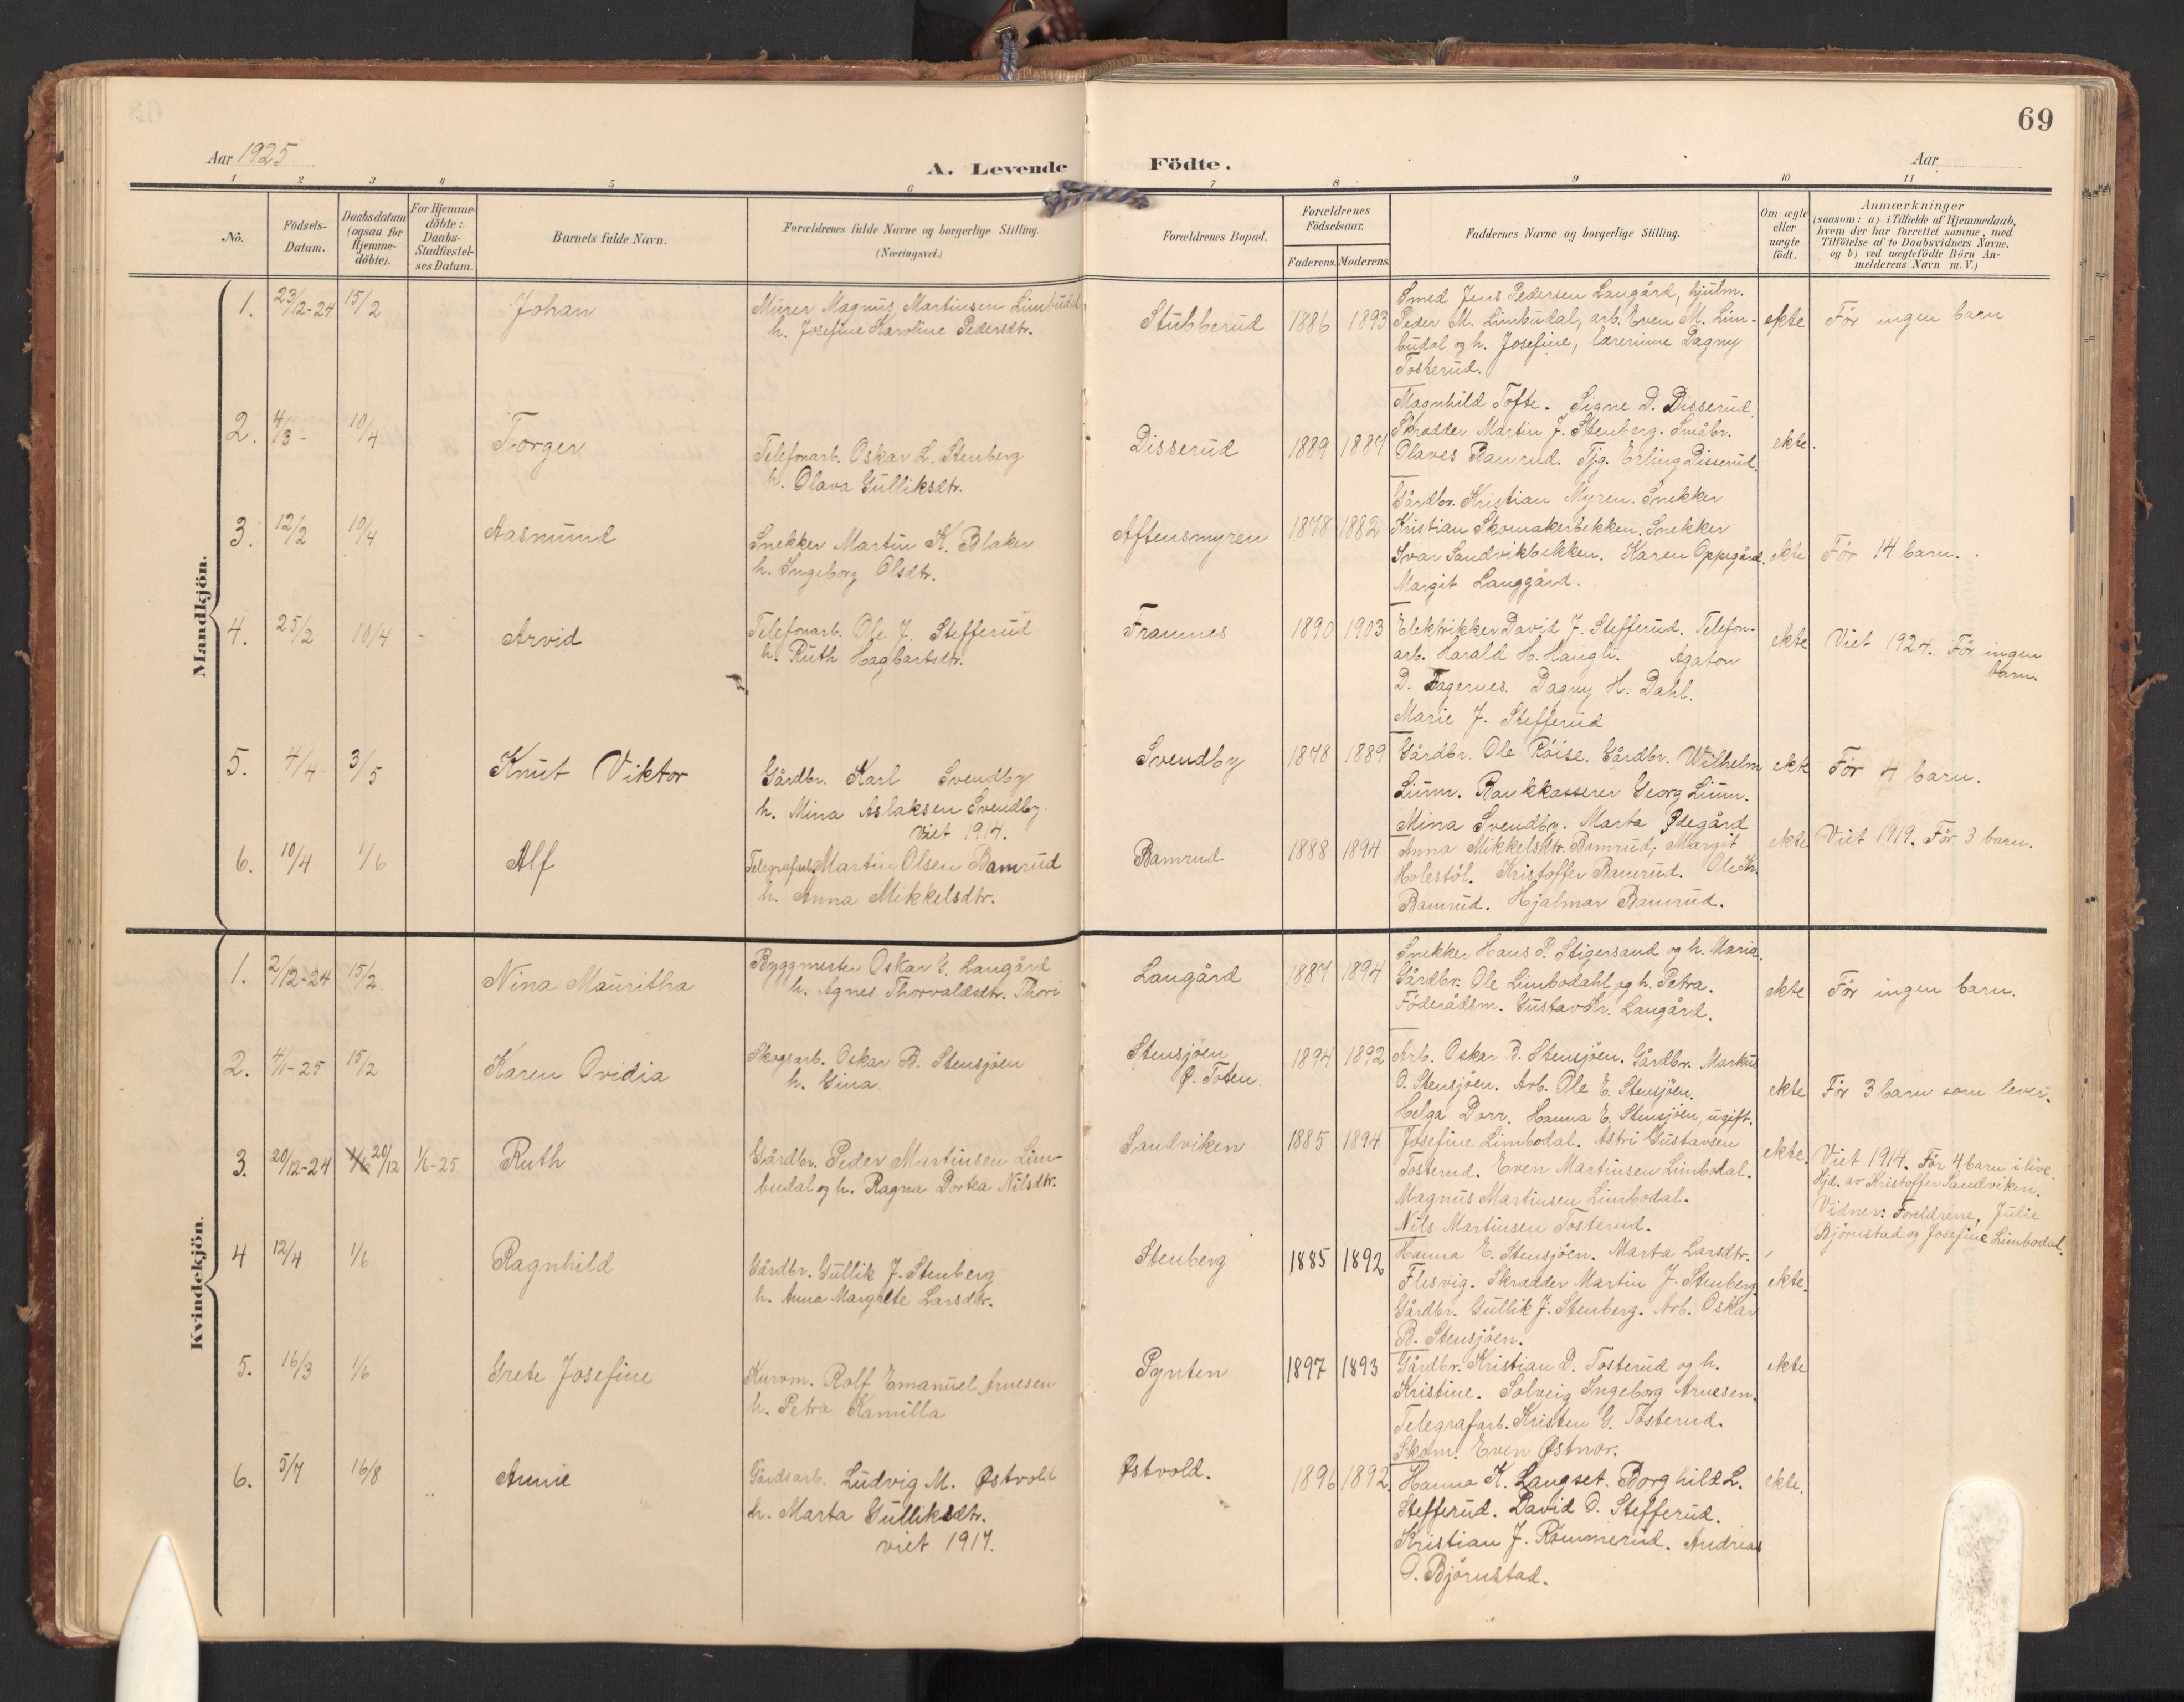 69
Aar 1925
A. Levende Födte.
Aar
1 2 3 4 5 6 7 8 9 10 11
No.
Födsels-
Datum.
Daabsdatum
(ogsaa for
Hjemme-
döbte).
For Hjemme-
döbte:
Daabs-
Stadfæstel-
ses Datum.
Barnets fulde Navn.
Forældrenes fulde Navne og borgerlige Stilling.
(Næringsvei.)
Forældrenes Bopæl.
Forældrenes
Födselsaar.
Faderens. Moderens.
Faddernes Navne og borgerlige Stilling.
Om ægte
eller
uægte
födt.
Anmærkninger
(saasom: a) i Tilfælde af Hjemmedaab,
hvem der har forrettet samme, med
Tilföielse af to Daabsvidners Navne,
og b) ved uægtefödte Börn An-
melderens Navn m. V.)
Mandkjön.
1. 23/12-24 15/2 Johan
Murer Magnus Martinsen Limbudal
h. Josefine Karoline Pedersdtr.
Stubberud 1886 1893
Smed Jens Pedersen Langård, hjulm.
Peder M. Limbudal, arb. Even M. Lim-
budal og h. Josefine, lærerinne Dagny
Tosterud.
ekte För ingen barn
2. 4/3- 10/4 Torger
Telefonarb. Oskar L. Stenberg
h. Olava Gulliksdtr.
Disserud 1889 1887
Magnhild Tofte. Signe D. Disserud.
Skrædder Martin J. Stenberg. Småbr.
Olaves Bamrud. Tjg. Erling Disserud.
ekte.
3. 12/2 10/4 Aasmund
Snekker Martin K. Blaker
h. Ingeborg Olsdtr.
Aftensmyren 1878 1882
Gårdbr. Kristian Myren. Snekker
Kristian Skomakerbekken. Snekker
Ivar Sandvikbekken. Karen Oppegård.
Margit Langgård.
ekte För 14 barn.
4. 25/2 10/4 - Arvid
Telefonarb. Ole J. Stefferud
h. Ruth Hagbartsdtr.
Framnes 1890 1903
Elektrikker David J. Stefferud. Telefon-
arb. Harald H. Haugli. Agaton
D. Fagernes. Dagny H. Dahl.
Marie J. Stefferud
ekte Viet 1924. För ingen
barn.
5. 4/4 3/5 Knut Viktor
Gårdbr. Karl Svendby
h. Mina Aslaksen Svendby.
Viet 1914.
Svendby 1878 1889
Gårdbr. Ole Röise. Gårdbr. Wilhelm
Linn. Bankkasserer Georg Linn.
Mina Svendby. Marta Ødegård
ekte För 4 barn.
6. 10/4 1/6 Alf
Telegrafarb. Martin Olsen Bamrud
h. Anna Mikkelsdtr.
Bamrud 1888 1894
Anna Mikkelsdtr. Bamrud, Margit
Holestöl. Kristoffer Bamrud. Ole Kr.
Bamrud. Hjalmar Bamrud.
ekte Viet 1919. För 3 barn.
Kvindekjön.
1. 2/12-24 15/2. Nina Mauritha
Byggmester Oskar G. Langård
h. Agnes Thorvaldsdtr. Thori
Langård 1887 1894
Snekker Hans P. Stigersand og h. Maria.
Gårdbr. Ole Limbodahl og h. Petra.
Föderådsm. Gustav Kr. Langård.
ekte För ingen barn.
2. 4/1-25 15/2 Karen Ovidia
Skogsarb. Oskar B. Stensjöen
h. Gina.
Stensjöen
Ø. Toten. 1894 1892
Arb. Oskar B. Stensjöen. Gårdbr. Markus
O. Stensjöen. Arb. Ole E. Stensjöen.
Helga Dorr. Hanna E. Stensjöen, ugift.
ekte För 3 barn som lever.
3. 20/12-24 1/6 20/12 1/6-25. Ruth
Gårdbr. Peder Martinsen Lim-
budal og h. Ragna Dorka Nilsdtr.
Sandviken 1885 1894
Josefine Limbodal. Astri Gustavsen
Tosterud. Even Martinsen Limbodal.
Magnus Martinsen Limbodal.
Nils Martinsen Tosterud.
ekte. Viet 1914. För 4 barn i live.
Hjd. av Kristoffer Sandviken.
Vidner: Foreldrene, Julie
Björnstad og Josefine Limbodal.
4 12/4 1/6 Ragnhild
Gårdbr. Gullik J. Stenberg
h. Anna Margrete Larsdtr.
Stenberg 1885 1892
Hanna E. Stensjöen. Marta Larsdtr.
Flesvig. Skrædder Martin J. Stenberg.
Gårdbr. Gullik J. Stenberg. Arb. Oskar
B. Stensjöen.
ekte.
5. 16/3 1/6 Grete Josefine
Kurvm. Rolf Emanuel Arnesen
h. Petra Kamilla
Pynten 1897 1893
Gårdbr. Kristian D. Tosterud og h.
Kristine. Solveig Ingeborg Arnesen.
Telegrafarb. Kristen G. Tosterud.
Skom. Even Østnor.
ekte
6. 5/7 16/8 Annie
Gårdsarb. Ludvig M. Østvold
h. Marta Gulliksdtr.
viet 1917.
Østvold. 1896 1892.
Hanna K. Langset. Borghild L.
Stefferud. David O. Stefferud.
Kristian J. Römmerud. Andreas
O. Björnstad.
ekte.